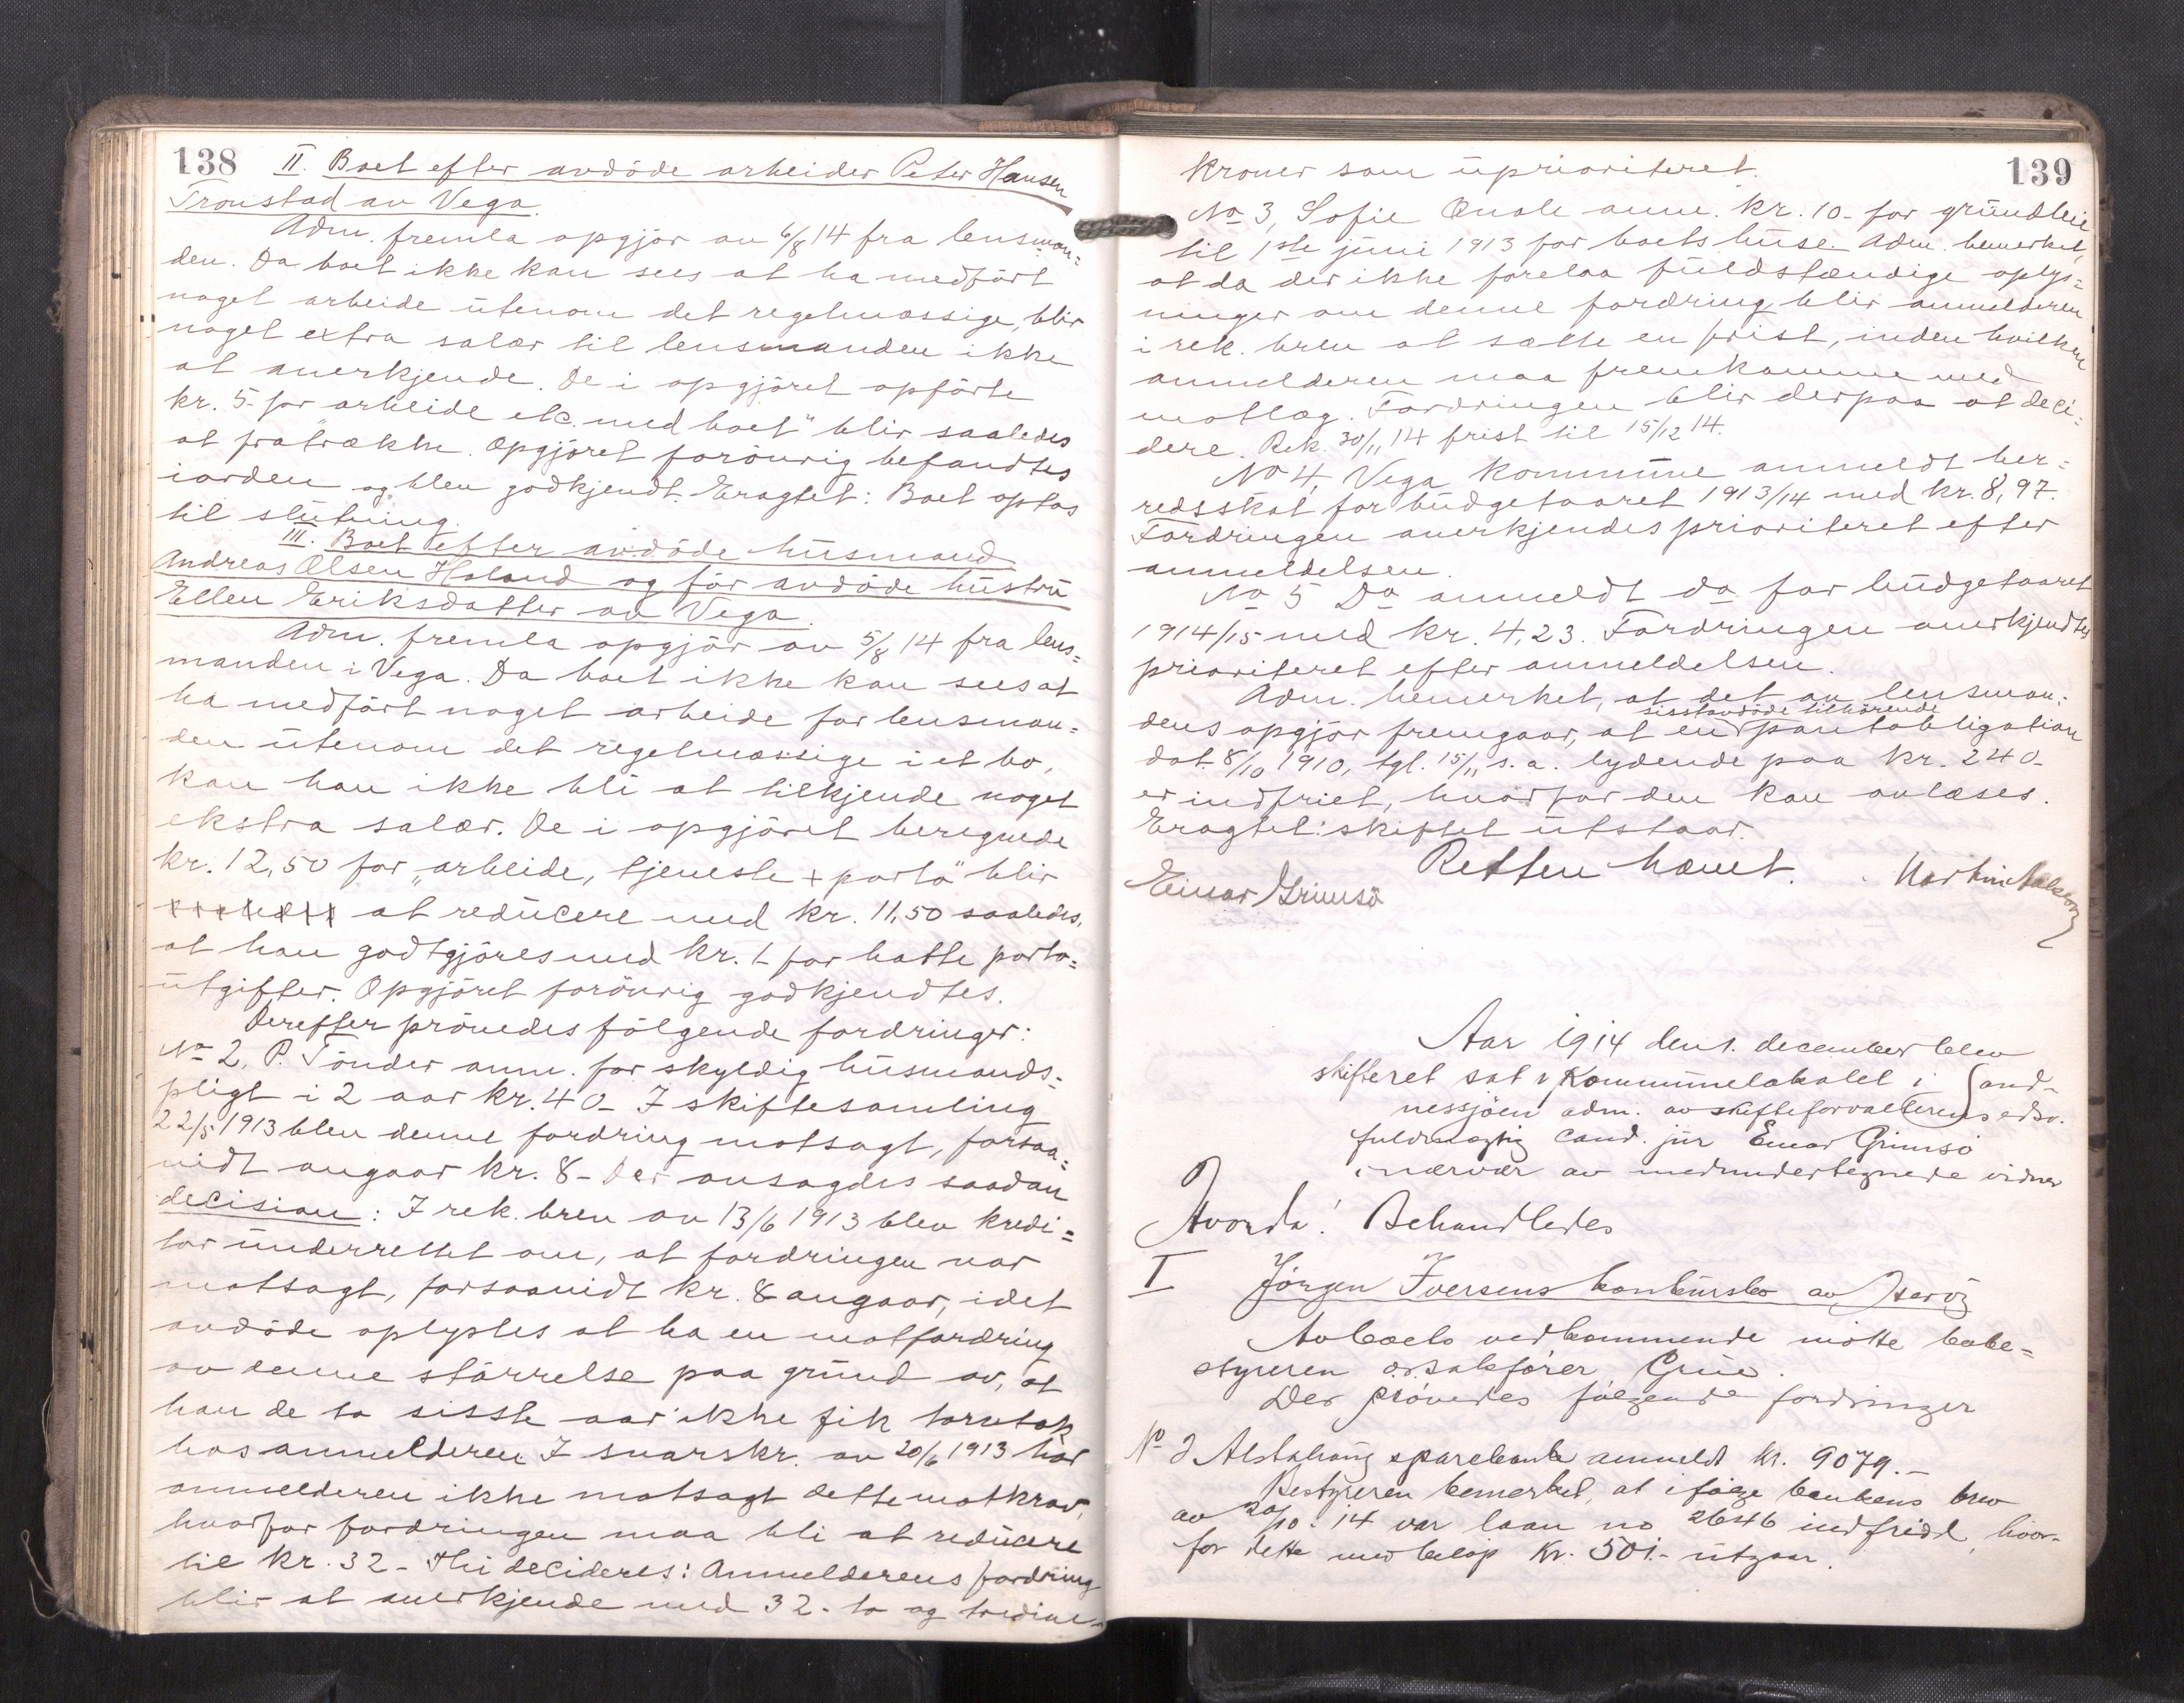 138
II. Boet efter avdöde arbeider Peter Hansen
Tronstad av Vega.
Adm. fremla opgjör av 6/8 14 fra lensman=
den. Da boet ikke kan sees at ha medfört
noget arbeide utenom det regelmæssige, blir
noget extra salær til lensmanden ikke
at anerkjende. De i opgjöret opförte
kr. 5- for "arbeide etc. med boet" blir saaledes
at fratrække. Opgjöret forövrig befandtes
iorden og blev godkjendt. Eragtet: Boet optas
til slutning.
III. Boet efter avdöde husmand
Andreas Olsen Haland og för avdöde hustru
Ellen Eriksdatter av Vega.
Adm. fremla opgjör av 5/8 14 fra lens=
manden i Vega. Da boet ikke kan sees at
ha medfört noget arbeide for lensman=
den utenom det regelmæssige i et bo,
kan han ikke bli at tilkjende noget
ekstra salær. De i opgjöret beregnede
kr. 12,50 for "arbeide, tjeneste + porto" blir
at reducere med kr. 11,50 saaledes,
at han godtgjöres med kr. 1- for hatte porto=
utgifter. Opgjöret forövrig godkjendtes.
Derefter prövedes fölgende fordringer:
No 2, P. Tönder anm. for skyldig husmands=
pligt i 2 aar kr. 40- I skiftesamling
22/5 1913 blev denne fordring motsagt, forsaa=
vidt angaar kr. 8- Der avsagdes saadan
decision: I rek. brev av 13/6 1913 blev kredi=
tor underrettet om, at fordringen var
motsagt, forsaavidt kr. 8- angaar, idet
avdöde oplystes at ha en motfordring
av denne störrelse paa grund av, at
han de to sisste aar ikke fik torvtak
hos anmelderen. I svarskr. av 20/6 1913 har
anmelderen ikke motsagt dette motkrav,
hvorfor fordringen maa bli at reducere
til kr. 32- Thi decideres: Anmelderens fordring
blir at anerkjende med 32- to og tredive-
139
kroner som uprioriteret.
No 3, Sofie Qvale anm. kr. 10- for grundleie
til 1ste juni 1913 for boets huse. Adm. bemerket,
at da der ikke forelaa fuldstændige oplys=
ninger om denne fordring, blir anmelderen
i rek. brev at sætte en frist, inden hvilken
anmelderen maa fremkomme med
motlæg. Fordringen blir derpaa at deci=
dere. Rek. 30/11 14 frist til 15/12 14.
No 4, Vega kommune anmeldt her=
redsskat for budgetaaret 1913/14 med kr. 8,97.
Fordringen anerkjendes prioriteret efter
anmeldelsen.
No 5 Do anmeldt do for budgetaaret
1914/15 med kr. 4,23. Fordringen anerkjendtes
prioriteret efter anmeldelsen.
Adm. bemerket, at det av lensman=
sisstavdöde tilhörende
dens opgjör fremgaar, at en pantobligation
dat. 8/10 1910, tgl. 15/11 s. a. lydende paa kr. 240-
er indfriet, hvorfor den kan avlæses.
Eragtet: skiftet utstaar.
Retten hævet.
Einar Grimsö
Martin
Aar 1914 den 1. december blev
skifteret sat i Kommunelokalet i Sand-
nessjöen adm. av skifteforvalterens edsv.
fuldmægtig cand. jur Einar Grimsö
i nærvær av medundertegnede vidner
Hvorda! Behandledes
I Jörgen Iversens konkursbo av Herö
Av boets vedkommende mötte bobe=
styreren o.r.sakförer Grüe.
Der prövedes fölgende fordringer
No 2 Alstahaug sparebank anmeldt kr. 9079.-
Bestyreren bemerket, at ifölge bankens brev
av 20/10 - 14 var laan no 2646 indfridd, hvor-
for dette med belöp kr. 501.- utgaar.